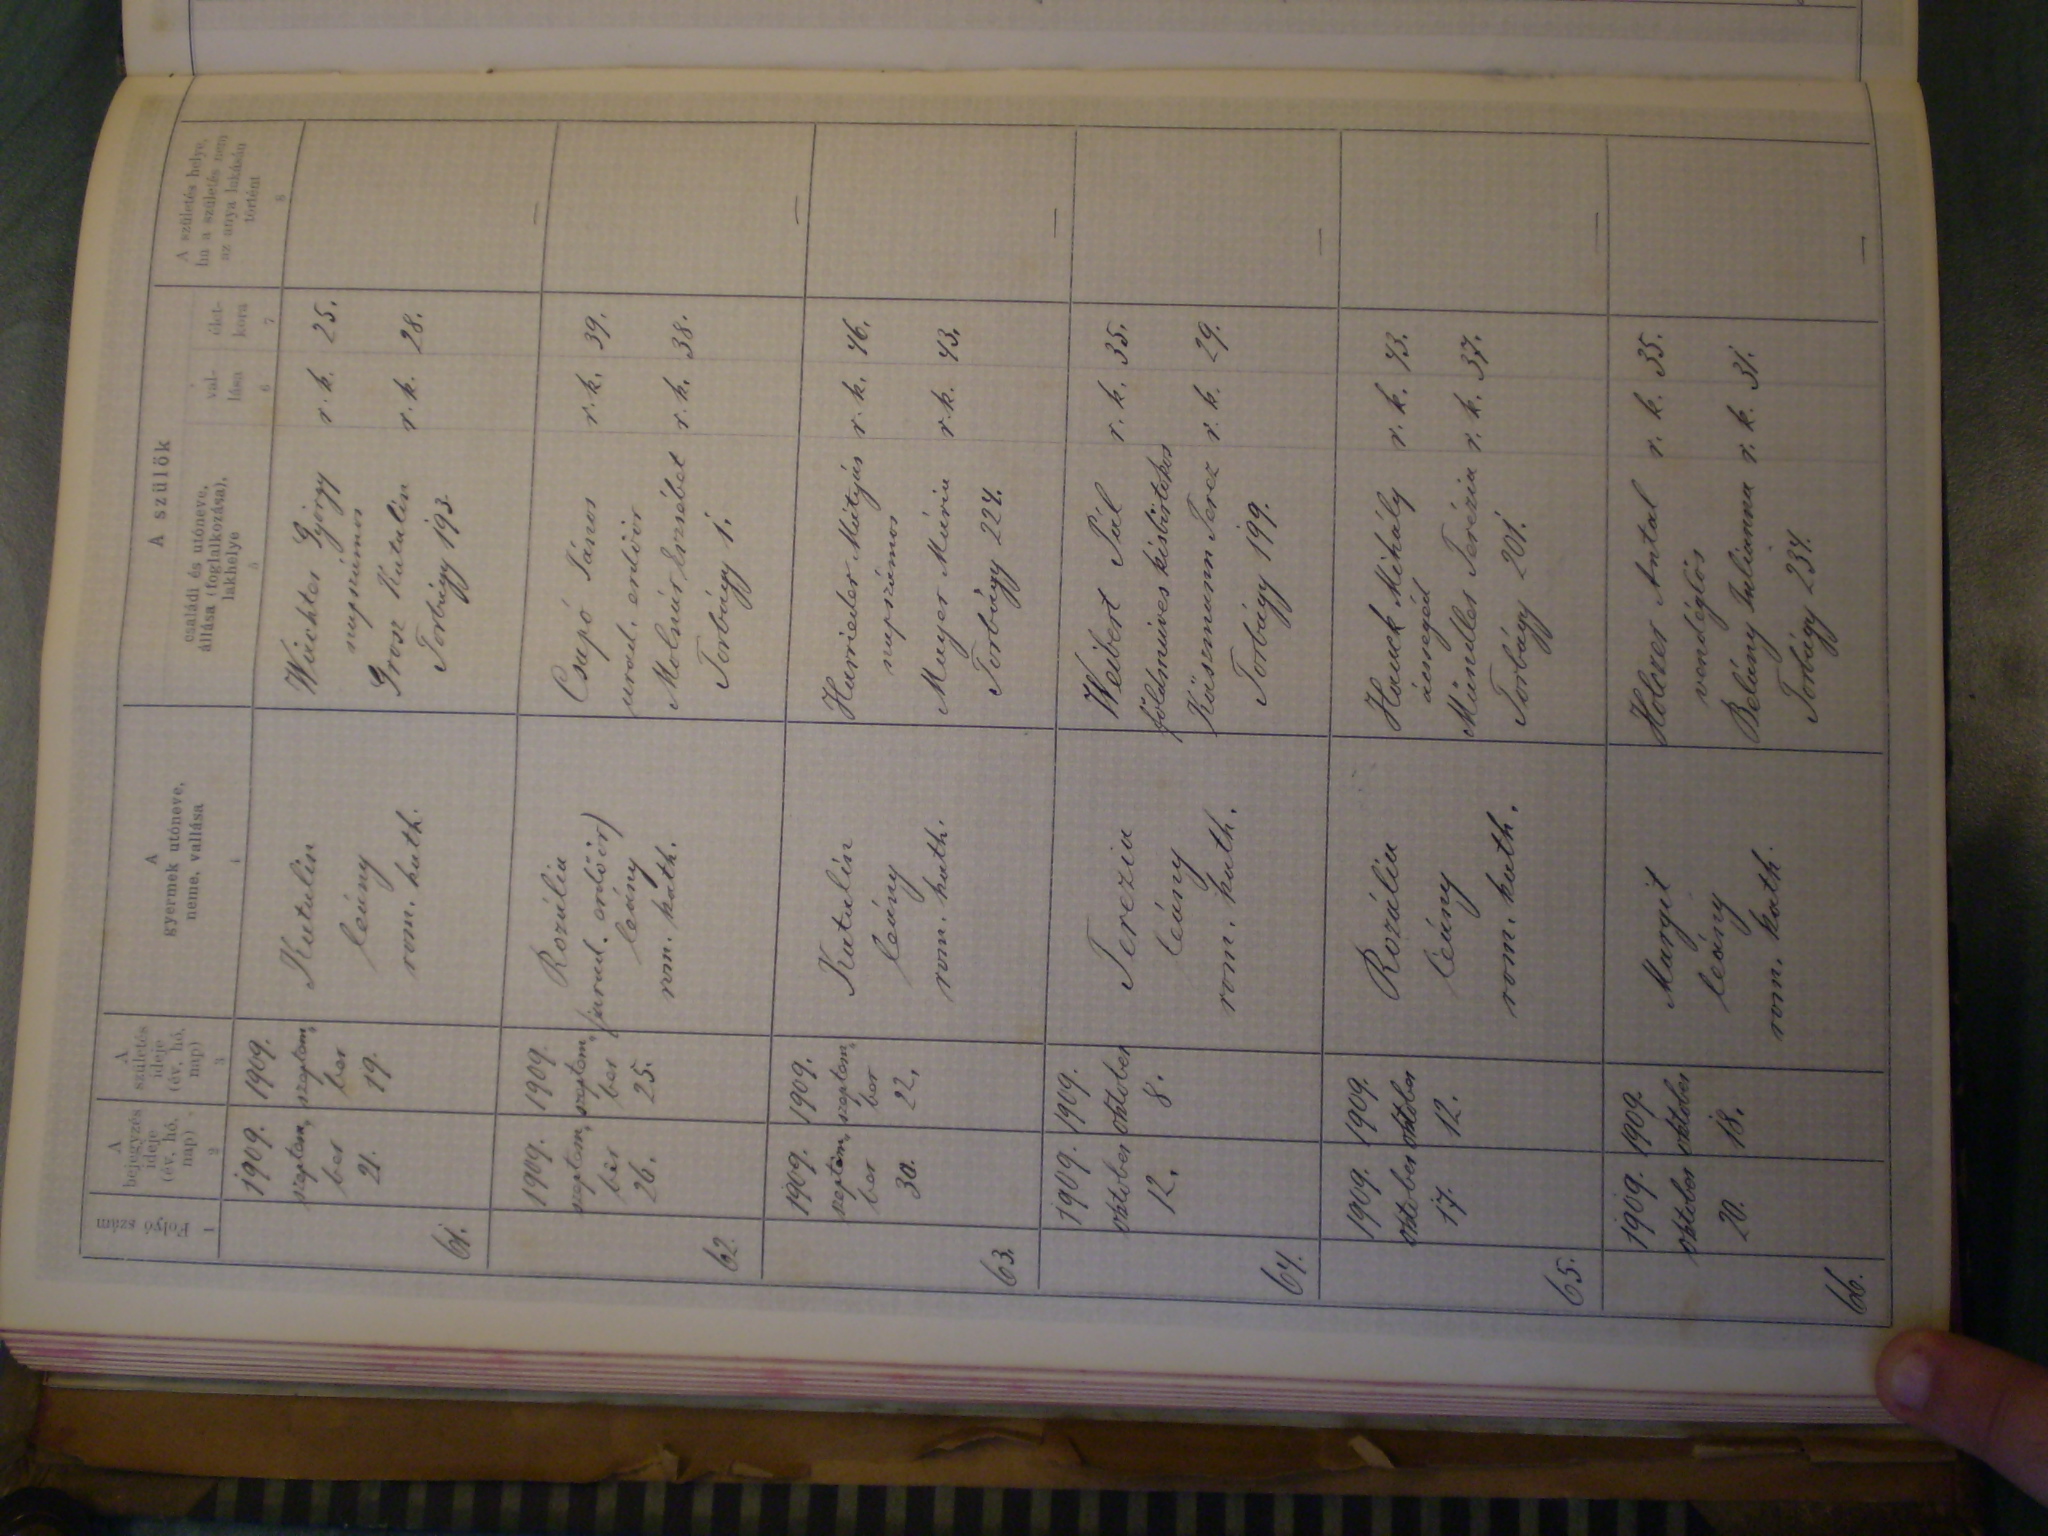 Folyó szám
A bejegyzés ideje (év, hó, nap)
A születés ideje (év, hó, nap)
A gyermek utóneve, neme, vallása
A szülők
családi és utóneve, állása (foglalkozása), lakhelye
val-lása
élet-kora
A születés helye, ha a születés nem az anya lakásán történt
1 2 3 4 5 6 7 8
61.
1909. szeptem, ber 21.
1909. szeptem, ber 19.
Katalin
leány
rom. kath.
Wächter György r. k. 25.
napszámos
Grosz Katalin r. k. 28.
Torbágy 193.
62.
1909. szeptem, ber 26.
1909. szeptem, ber 25.
Rozália
(urad. erdőőr)
leány
rom. kath.
Csapó János r. k. 39.
urad. erdőőr
Molnár Erzsébet r. k. 38.
Torbágy 1.
—
63.
1909. szeptem, ber 30.
1909. szeptem, ber 22.
Katalin
leány
rom. kath.
Harrieder Mátyás r. k. 46.
napszámos
Mayer Mária r. k. 43.
Torbágy 224.
—
64.
1909. október 12.
1909. október 8.
Terezia
leány
rom. kath.
Weibert Pál r. k. 35.
földmíves kisbirtokos
Käszmann Terez r. k. 29.
Torbágy 199.
—
65.
1909. október 17.
1909. október 12.
Rozália
leány
rom. kath.
Hauck Mihály r. k. 43.
ácssegéd
Mandler Terézia r. k. 37.
Torbágy 201.
—
66.
1909. október 20.
1909. október 18.
Margit
leány
rom. kath.
Holczer Antal r. k. 35.
vendéglős
Belány Julianna r. k. 31.
Torbágy 234.
—